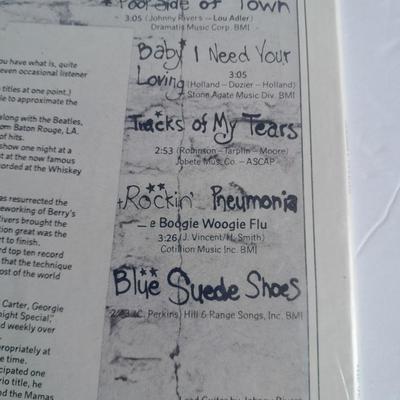 Poor Side of Town
3:05 (Johnny Rivers – Lou Adler)
Dramatis Music Corp. BMI
Baby I Need Your
Loving
3:05
(Holland – Dozier – Holland)
Stone Agate Music Div. BMI
Tracks of My Tears
2:53 (Robinson – Tarplin – Moore)
Jobete Mus. Co. – ASCAP
Rockin' Pneumonia
Boogie Woogie Flu
3:26 (J. Vincent/H. Smith)
Cotillion Music Inc. BMI
Blue Suede Shoes
(C. Perkins) Hill & Range Songs, Inc. BMI
ou have what is, quite
even occasional listener
titles at one point.)
le to approximate the
along with the Beatles,
om Baton Rouge, LA.
of hits.
show one night at a
t at the now famous
corded at the Whiskey
was resurrected the
eworking of Berry's
ivers brought the
tion great was the
rt to finish.
rd top ten record
that the technique
ost of the world
Carter, Georgie
night Special,"
d weekly over
propriately at
e time.
cipated one
rio title, he
nd the Mamas